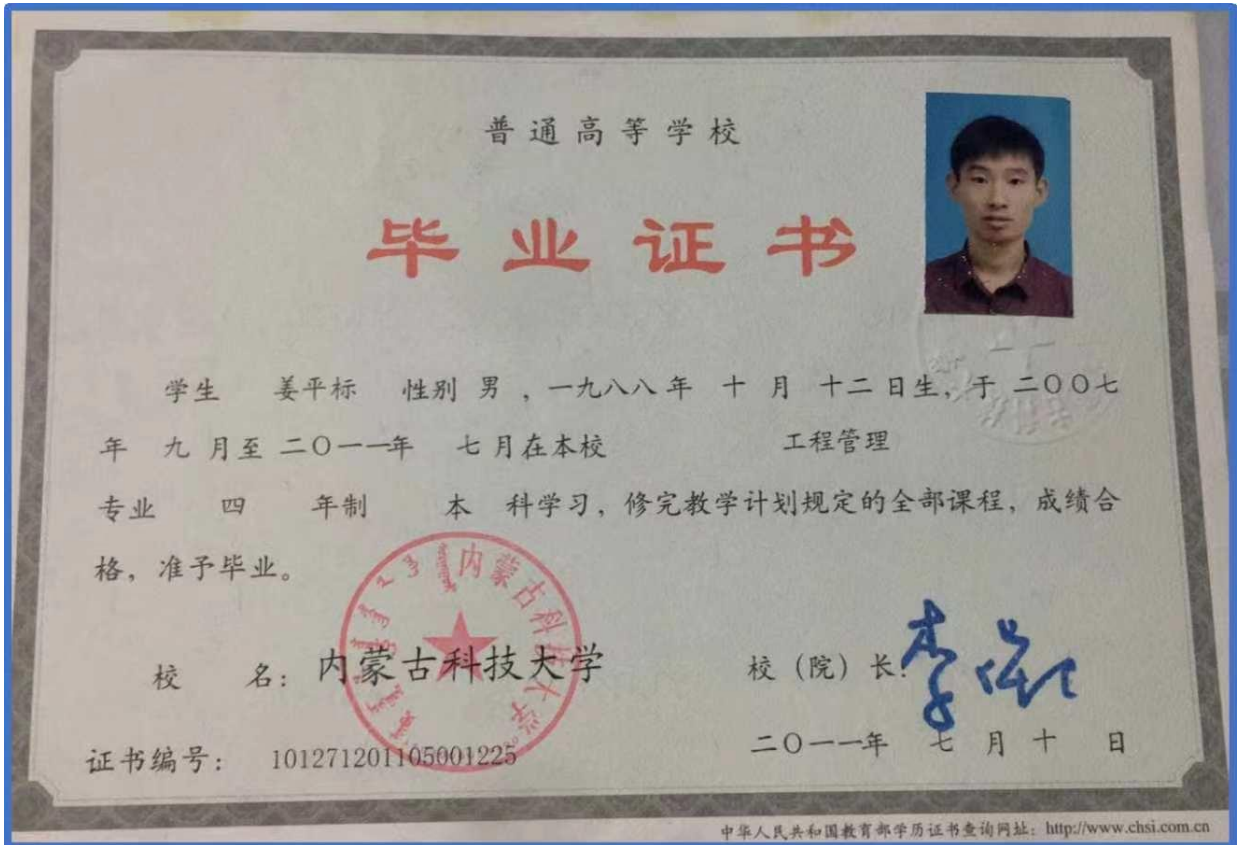 普通高等学校
毕业证书
学生 姜平标 性别 男 ，一九八八年 十 月 十二 日生，于 二〇〇七
年 九 月至 二〇一一年 七 月在本校 工程管理
专业 四 年制 本 科学习，修完教学计划规定的全部课程，成绩合
格，准予毕业。
内蒙古科技大学
校 名： 内蒙古科技大学 校（院）长：
证书编号： 101271201105001225 二〇一一年 七 月 十 日
中华人民共和国教育部学历证书查询网址：http://www.chsi.com.cn